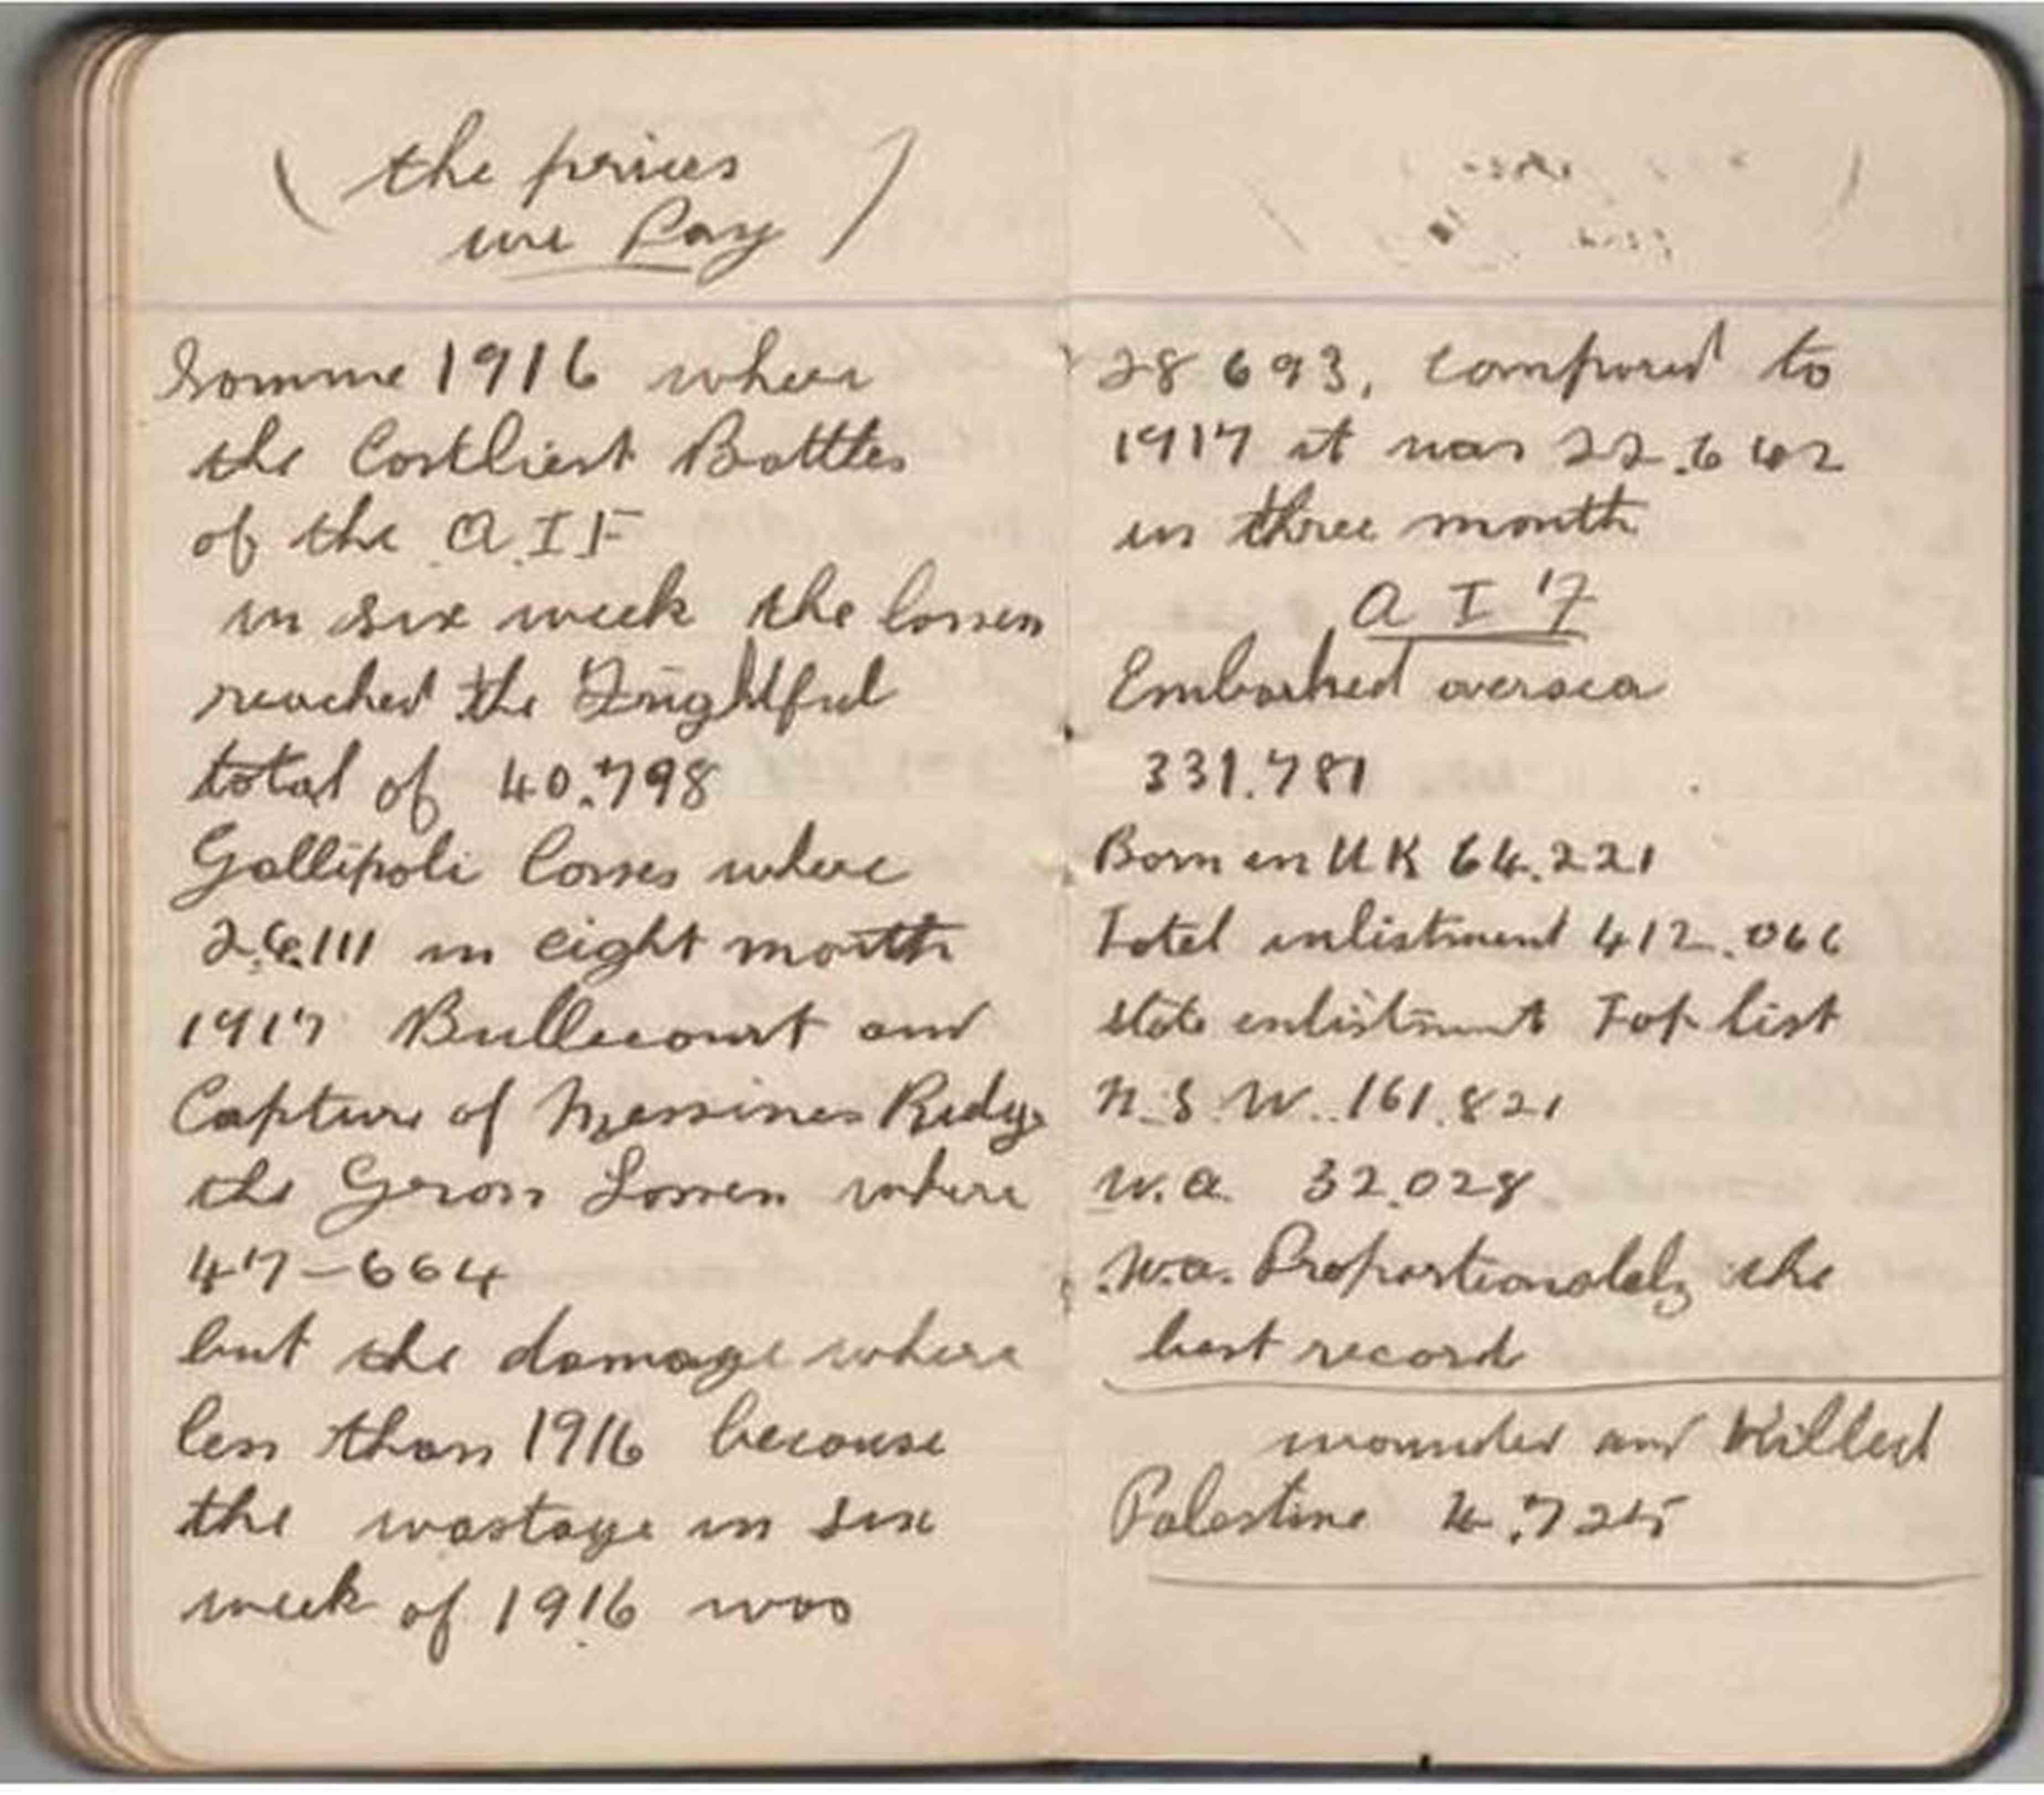 (the prices
we Pay)
Somme 1916 where
the Costliest Battles
of the A.I.F
in six week the losses
reached the Frightful
total of 40.798
Gallipoli losses where
26.111 in eight month
1917 Bullecourt and
Capture of Messines Ridge
the Gross Losses where
47-664
but the damage where
less than 1916 because
the wastage in six
week of 1916 was
28 693, compared to
1917 it was 22.642
in three month
A I F
Embarked oversea
331.781
Born in U K 64.221
Total enlistment 412.066
state enlistment Top list
N.S.W. 161.821
W.A. 32.028
W.A. Proportionately the
best record
wounded and Killed
Palestine 4.725